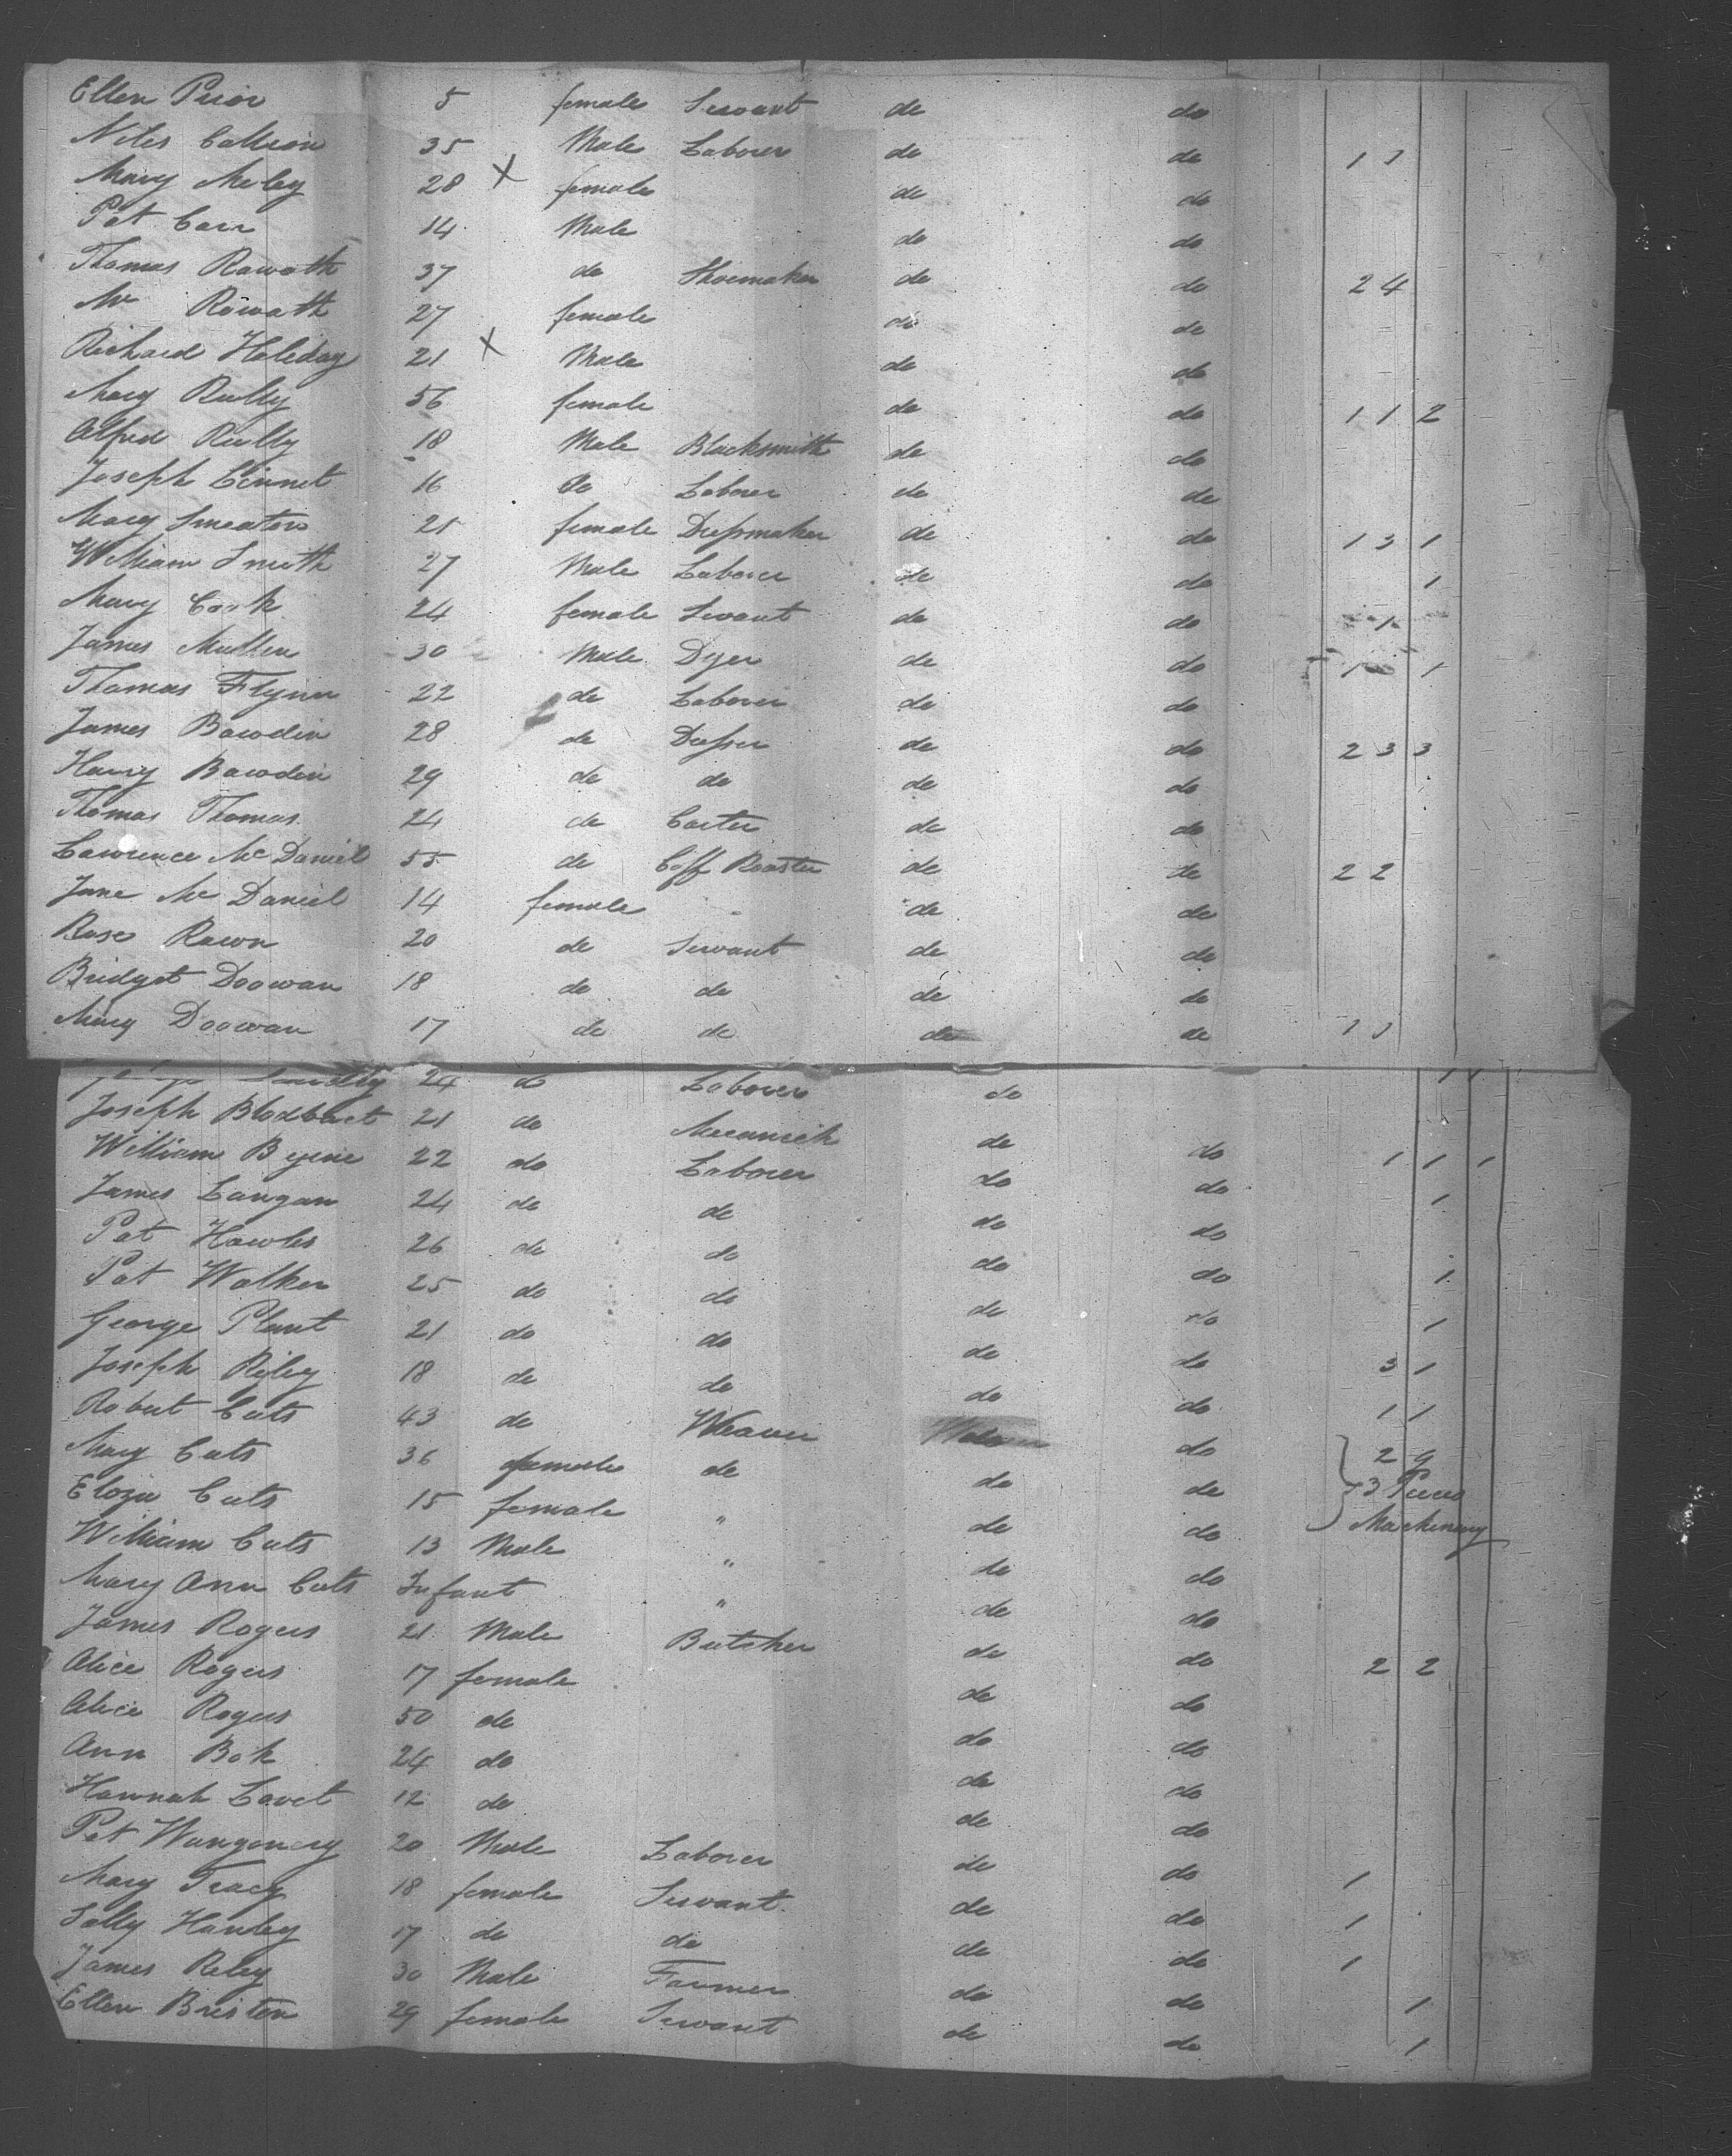 Ellen Prior 5 female Servant do do
Niles Callieon 35 Male Laborer do do 1 1
Mary Meley 28 X female do do
Pat Carr 14 Male do do
Thomas Rowath 37 do Shoemaker do do 2 4
Mrs Rowath 27 female do do
Richard Holiday 21 X Male do do
Mary Reilly 56 female do do 1 1 2
Alfred Reilly 18 Male Blacksmith do do
Joseph Linnet 16 do Laborer do do
Mary Smeaton 21 female Dressmaker do do 1 3 1
William Smith 27 Male Laborer do do 1
Mary Cook 24 female Servant do do 1
James Mullen 30 Male Dyer do do 1 1
Thomas Flynn 22 do Laborer do do
James Bawdin 28 do Dresser do do 2 3 3
Harry Bawdin 29 do do do do
Thomas Thomas 24 do Carter do do
Lawrence Mc Daniel 55 do Coff Roaster do do 2 2
Jane Mc Daniel 14 female do do
Rose Rawn 20 do Servant do do
Bridget Doowan 18 do do do do
Mary Doowan 17 do do do do 1 1
24 do Laborer do
Joseph Blodbact 21 do Mecanich do do 1 1 1
William Byrne 22 do Laborer do do 1
James Langan 24 do do do do
Pat Hawles 26 do do do do 1
Pat Walker 25 do do do do 1
George Plant 21 do do do do 3 1
Joseph Rijley 18 do do do do 1 1
Robert Cuts 43 do Weaver do 2 9
Mary Cuts 36 female do do do 3 Pieces
Eloza Cuts 15 female " do do Machinery
William Cuts 13 Male " do do
Mary Ann Cuts Infant " do do
James Rogers 21 Male Butcher do do 2 2
Alice Rogers 17 female do do
Alice Rogers 50 do do do
Ann Bok 24 do do do
Hannah Lovet 12 do do do
Pat Wangonery 20 Male Laborer do do 1
Mary Tracy 18 female Servant do do 1
Sally Hanley 17 do do do do 1
James Reley 30 Male Farmer do do 1
Ellen Bristen 29 female Servant do do 1